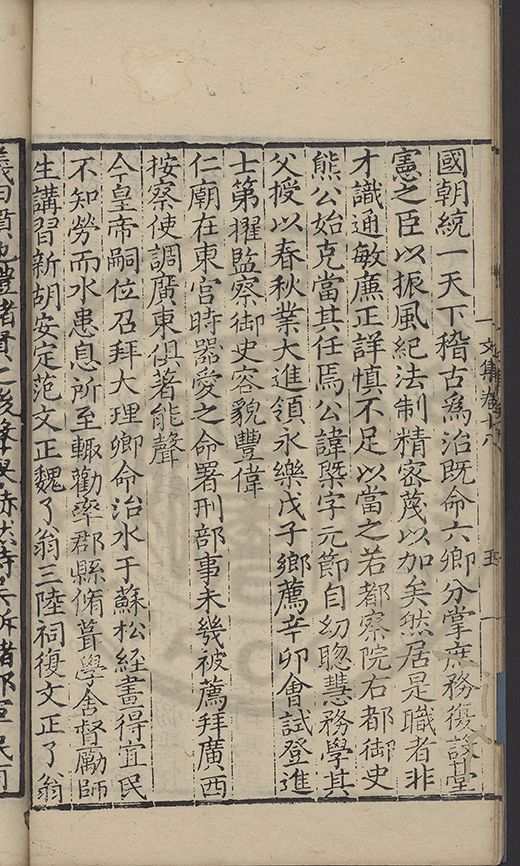 國朝統一天下稽古爲治既命六卿分掌庶務復設臺
憲之臣以振風紀法制精密蔑以加矣然居是職者非
才識通敏廉正詳慎不足以當之若都察院右都御史
熊公始克當其任焉公諱槩字元節自幼聰慧務學其
父授以春秋業大進領永樂戊子鄉薦辛卯會試登進
士第擢監察御史容貌豐偉
仁廟在東宮時器愛之命署刑部事未幾被薦拜廣西
按察使調廣東俱著能聲
今皇帝嗣位召拜大理卿命治水于蘇松經畫得宜民
不知勞而水患息所至輙勸率郡縣脩葺學舍督勵師
生講習新胡安定范文正魏了翁三陸祠復文正了翁
文集卷十八
五